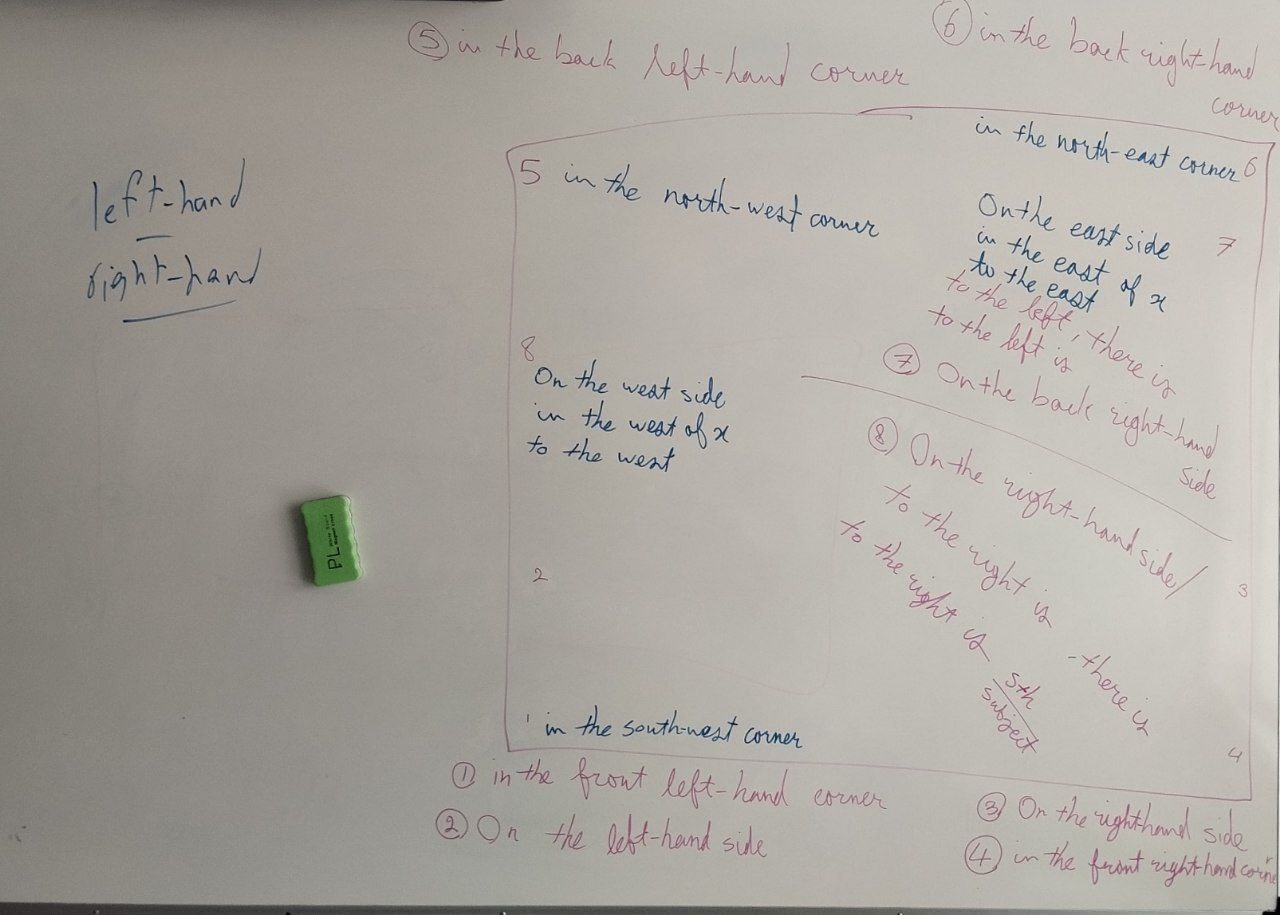 ⑤ in the back left-hand corner
⑥ in the back right-hand
corner
left-hand
right-hand
5 in the north-west corner
in the north-east corner 6
On the east side 7
in the east of x
to the east
to the left, there is
to the left is
⑦ On the back right-hand
side
8
On the west side
in the west of x
to the west
⑧ On the right-hand side/
to the right is
to the right is sth
subject
- there is
PL
2
3
1 in the south-west corner
4
① in the front left-hand corner
② On the left-hand side
③ On the righthand side
④ in the front right-hand corner